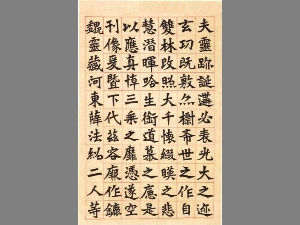 夫靈跡誕遘必表光大之迹
玄功既敷亦標希世之作自
雙林改照大千懷綴暎之悲
慧潛暉唅生銜道慕之應是
以應真悼三乘之靡憑遂空
刊像爰暨下代茲容厥作鏕
魏靈藏河東薛法紹二人等